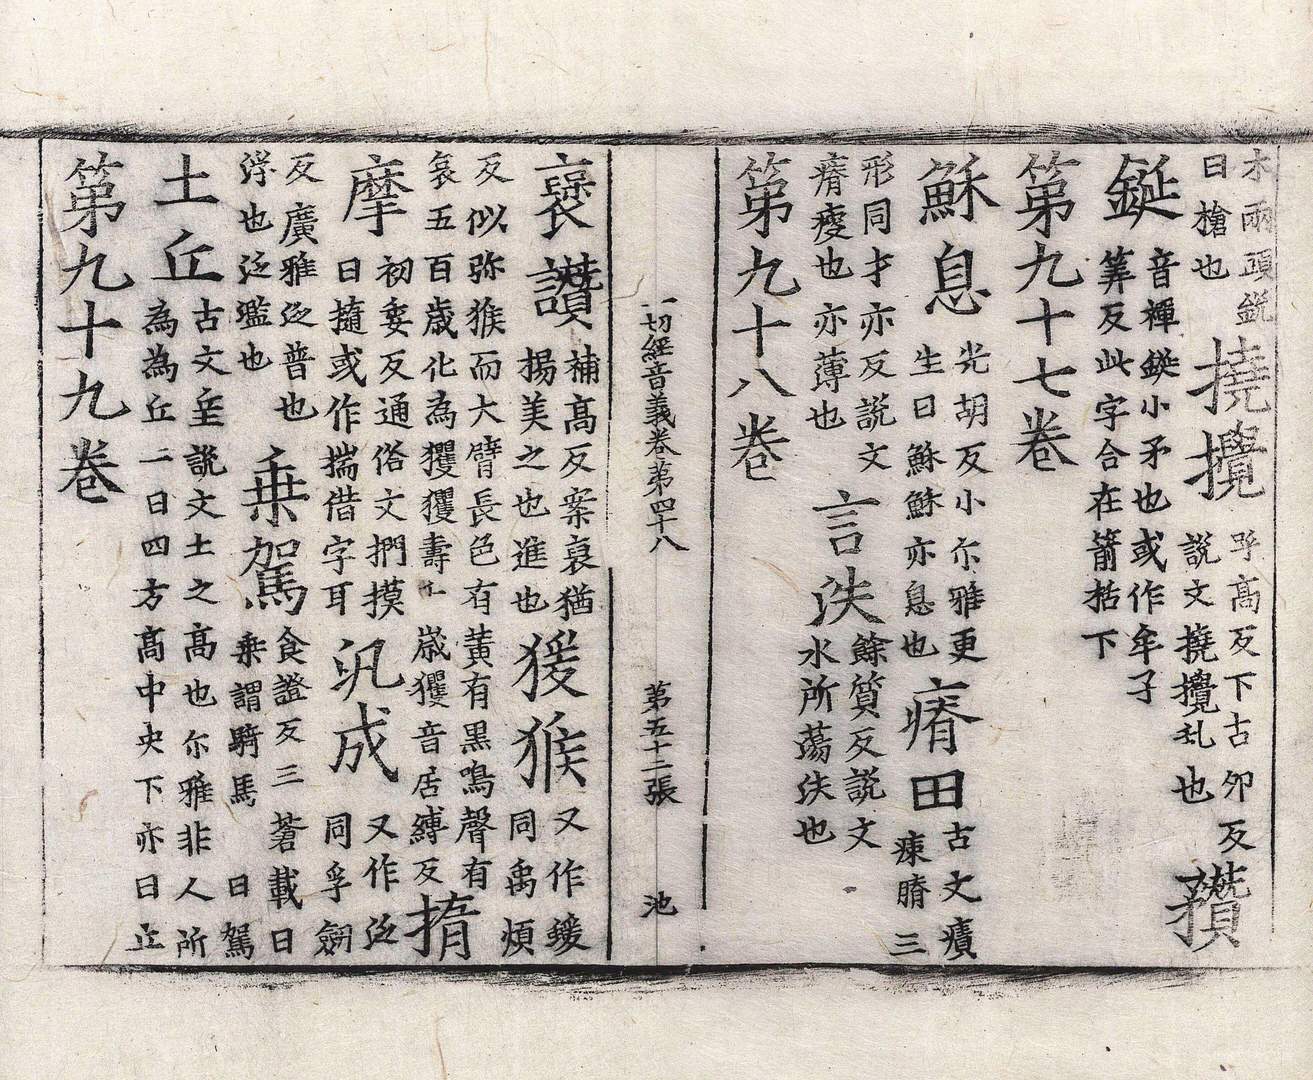 木兩頭銳
曰槍也
撓攪
乎高反下古卯反
說文撓攪乱也
欑
鋋
音禪鋋小矛也或作牟子
筭反此字合在箭栝下
第九十七卷
穌息
光胡反小尒雅更
生曰穌穌亦息也
瘠田
古文㾊
㾊膌三
形同才亦反說文
瘠瘦也亦薄也
言泆
餘質反說文
水所蕩泆也
第九十八卷
一切經音義卷第四十八
第五十二張
池
襃讚
補高反案裒猶
揚美之也進也
猨猴
又作蝯
同禹煩
反似弥猴而大臂長色有黃有黑鳴聲有
哀五百歲化為玃玃壽一歲玃音居縛反
揣
摩
初委反通俗文捫摸
曰㨃或作揣借字耳
汎成
又作泛
同孚劒
反廣雅泛普也
浮也泛濫也
乗駕
食證反三蒼載曰
乗謂騎馬曰駕
土丘
古文坙說文土之高也尒雅非人所
為為丘一曰四方高中央下亦曰丘
第九十九卷